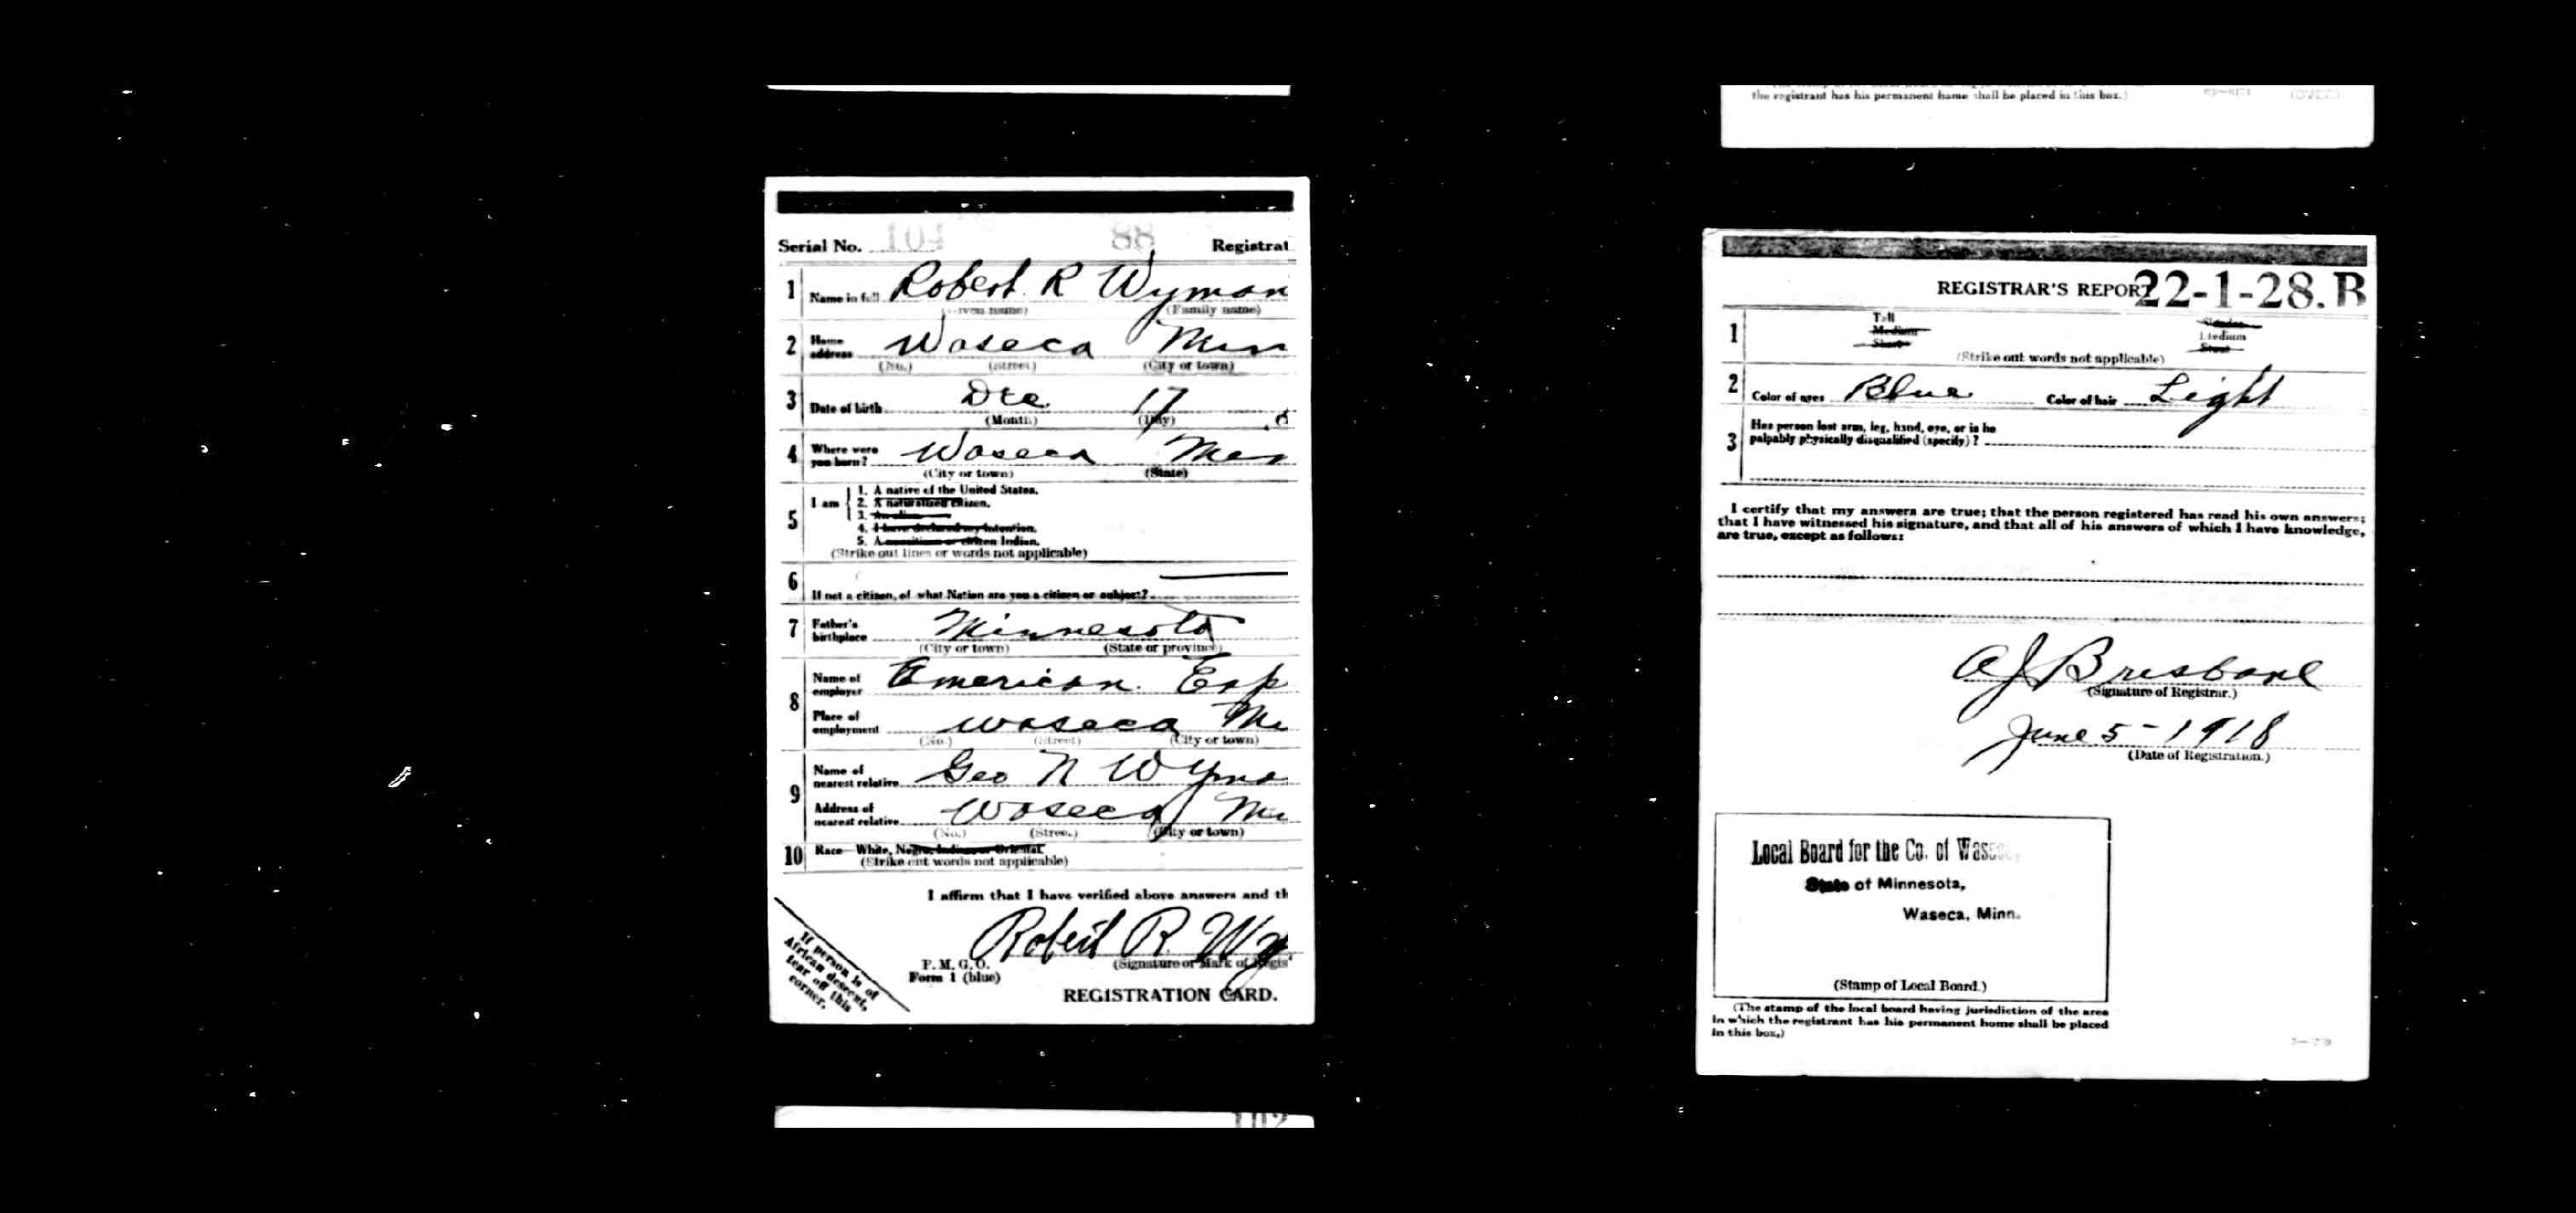 the registrant has his permanent home shall be placed in this box.)
Serial No. 104 88 Registrat
1 Name in full Robert R Wyman
(Given name) (Family name)
2 Home address Waseca Min
(No.) (Street) (City or town)
3 Date of birth Dec 17
(Month) (Day)
4 Where were you born? Waseca
(City or town) (State)
5 I am
1. A native of the United States.
2. A naturalized citizen.
3. An alien
4. I have declared my intention.
5. A noncitizen or citizen Indian.
(Strike out lines or words not applicable)
6
If not a citizen, of what Nation are you a citizen or subject?
7 Father's birthplace Minnesota
(City or town) (State or province)
8 Name of employer American Exp
Place of employment Waseca
(No.) (Street) (City or town)
9 Name of nearest relative Geo N Wyma
Address of nearest relative Waseca
(No.) (Street) (City or town)
10 Race—White, Negro, Indian or Oriental
(Strike out words not applicable)
I affirm that I have verified above answers and th
Robert R. Wy
(Signature or Mark of Regis
P. M. G. O.
Form 1 (blue)
REGISTRATION CARD.
If person is of
African descent,
tear off this
corner.
102
REGISTRAR'S REPORT 22-1-28.B
1 Tall Slender
Medium Medium
Short Stout
(Strike out words not applicable)
2 Color of eyes Blue Color of hair Light
3 Has person lost arm, leg, hand, eye, or is he
palpably physically disqualified (specify)?
I certify that my answers are true; that the person registered has read his own answers;
that I have witnessed his signature, and that all of his answers of which I have knowledge,
are true, except as follows:
A J Brisbane
(Signature of Registrar.)
June 5 - 1918
(Date of Registration.)
Local Board for the Co. of Waseca,
State of Minnesota,
Waseca, Minn.
(Stamp of Local Board.)
(The stamp of the local board having jurisdiction of the area
in which the registrant has his permanent home shall be placed
in this box.)